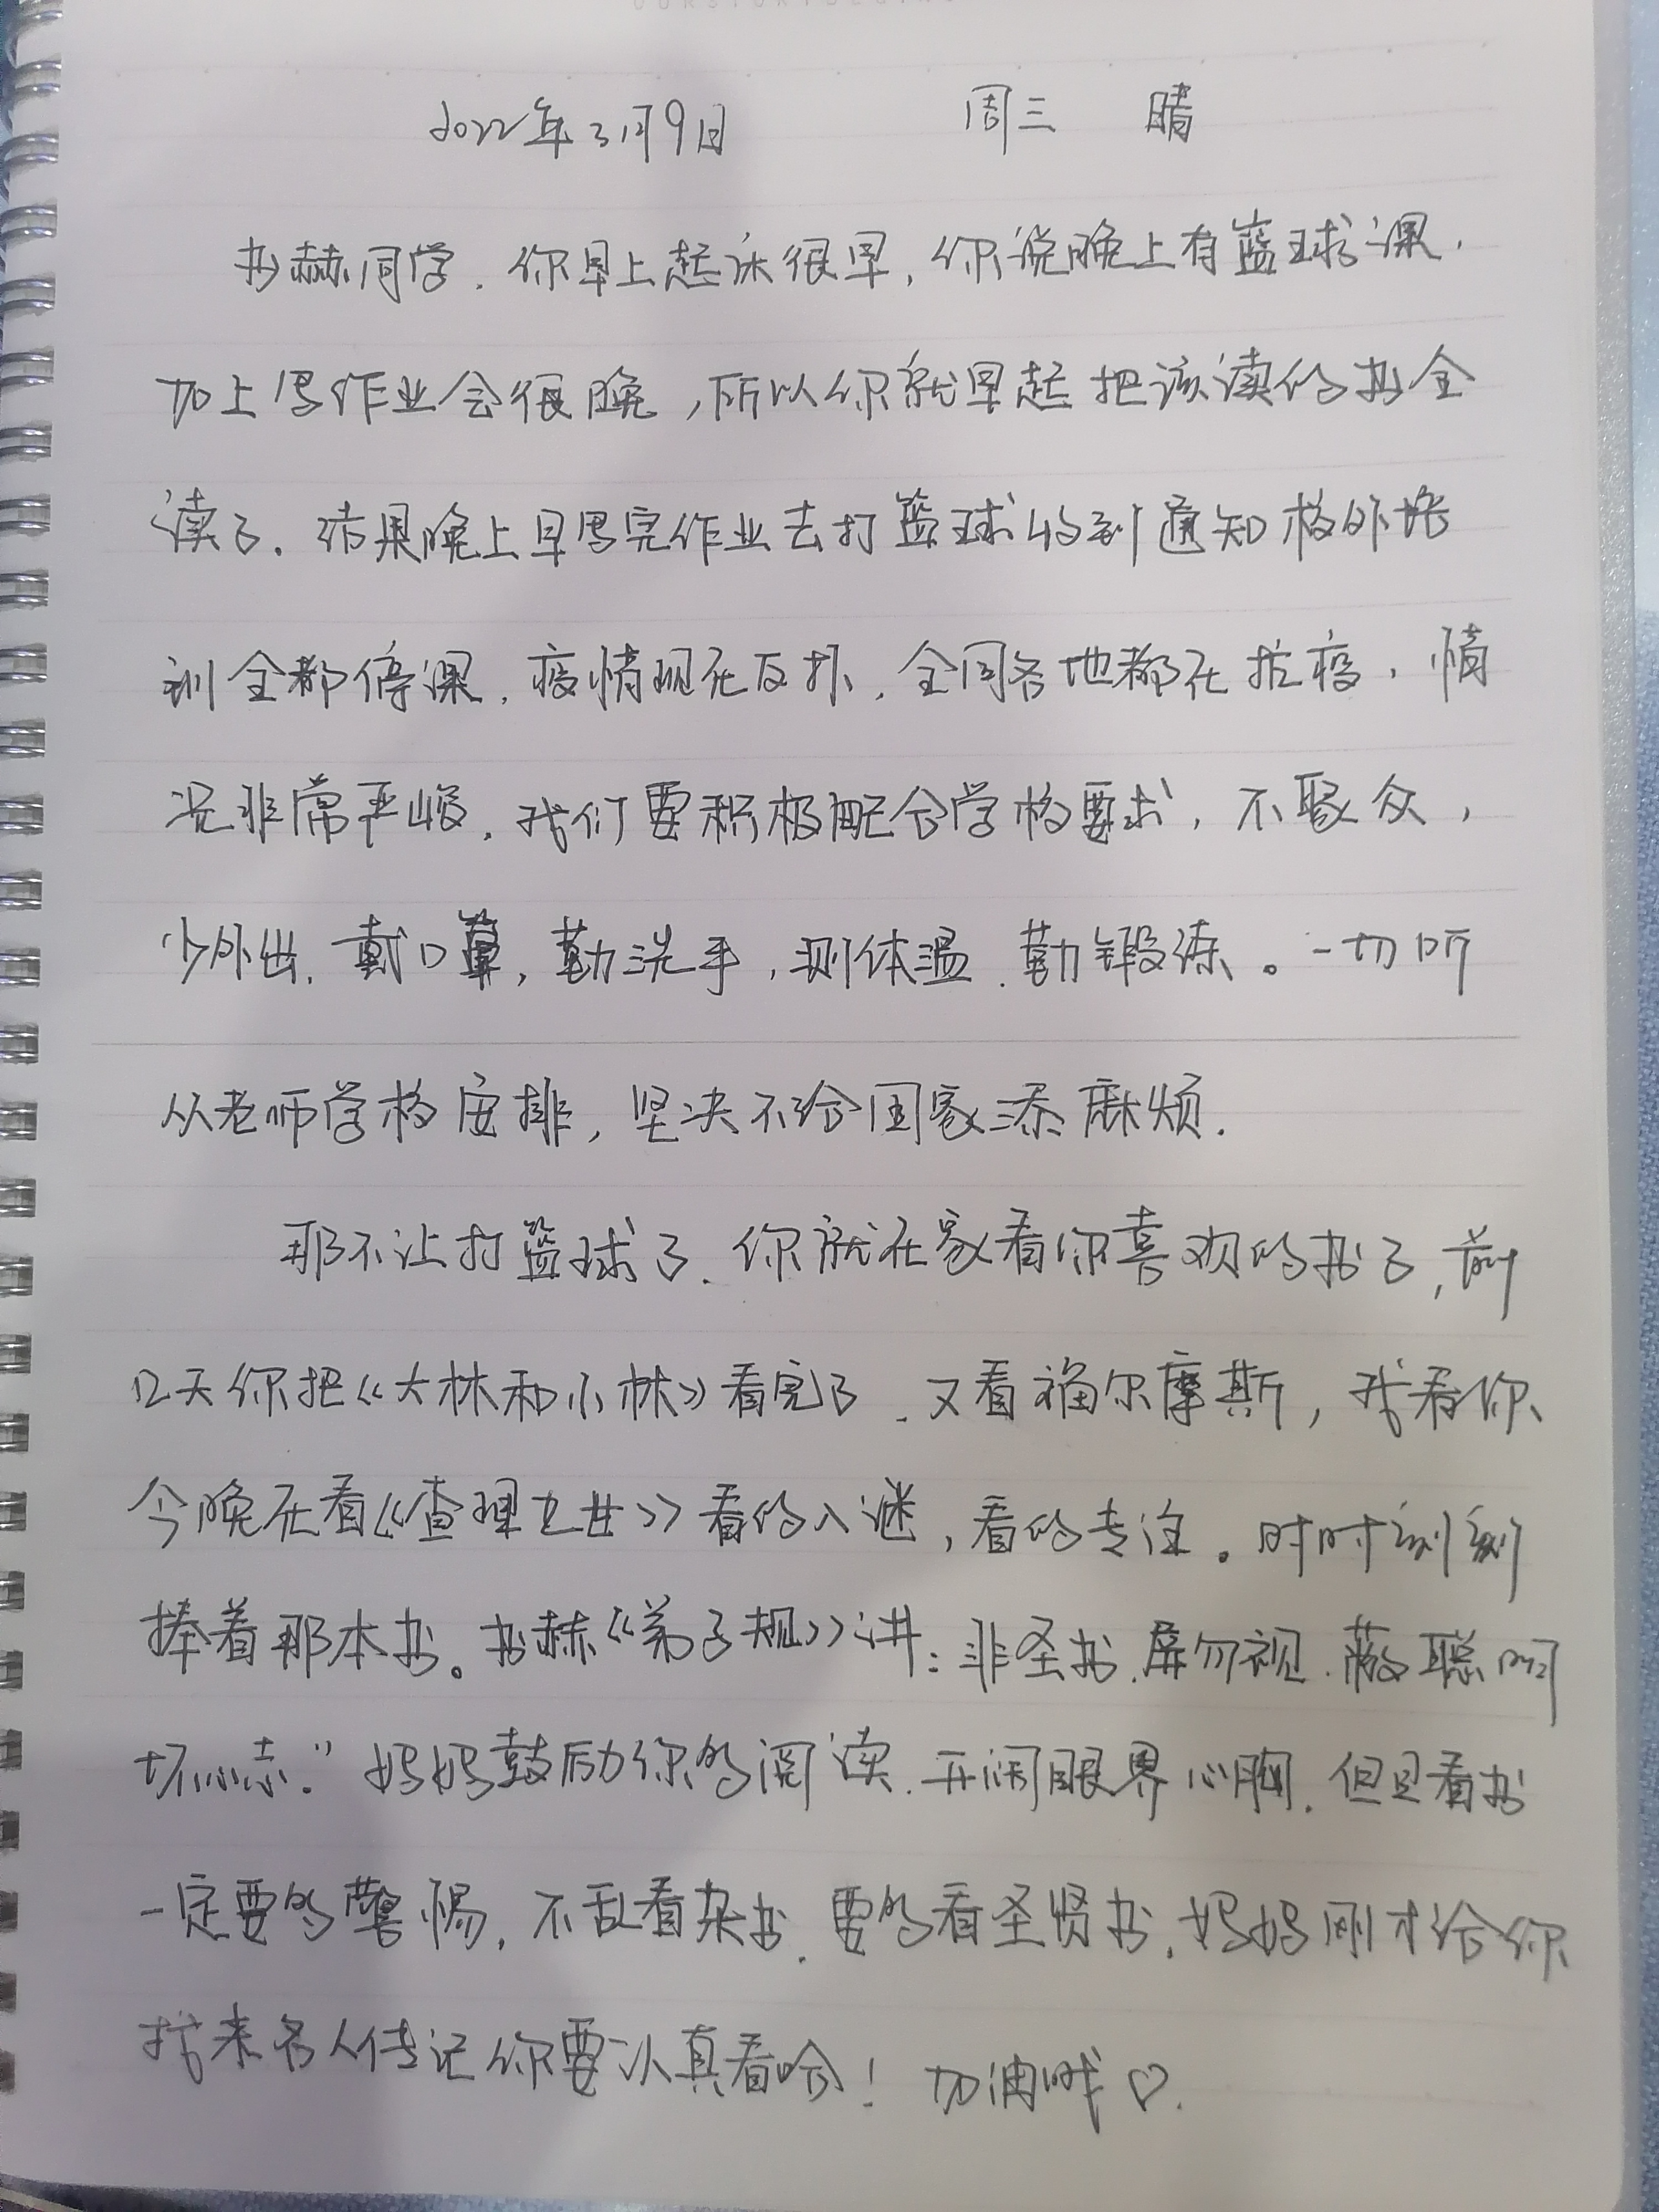 2022年3月9日 周三 晴
书赫同学.你早上起床很早,你说晚上有篮球课,
加上写作业会很晚,所以你就早起把该读的书全
读了.结果晚上早写完作业去打篮球收到通知校外培
训全都停课.疫情现在反扑,全国各地都在抗疫,情
况非常严峻.我们要积极配合学校要求,不聚众,
少外出.戴口罩,勤洗手,测体温.勤锻练。一切听
从老师学校安排,坚决不给国家添麻烦.
那不让打篮球了.你就在家看你喜欢的书了,前
几天你把《大林和小林》看完了.又看福尔摩斯,我看你
今晚在看《查理九世》看的入谜,看的专注。时时刻刻
捧着那本书。书赫《弟子规》讲:非圣书.屏勿视.蔽聪明
坏心志."妈妈鼓励你的阅读.开阔眼界心胸.但是看书
一定要的警惕,不乱看杂书.要的看圣贤书,妈妈刚才给你
找来名人传记你要认真看哈!加油哦♡.